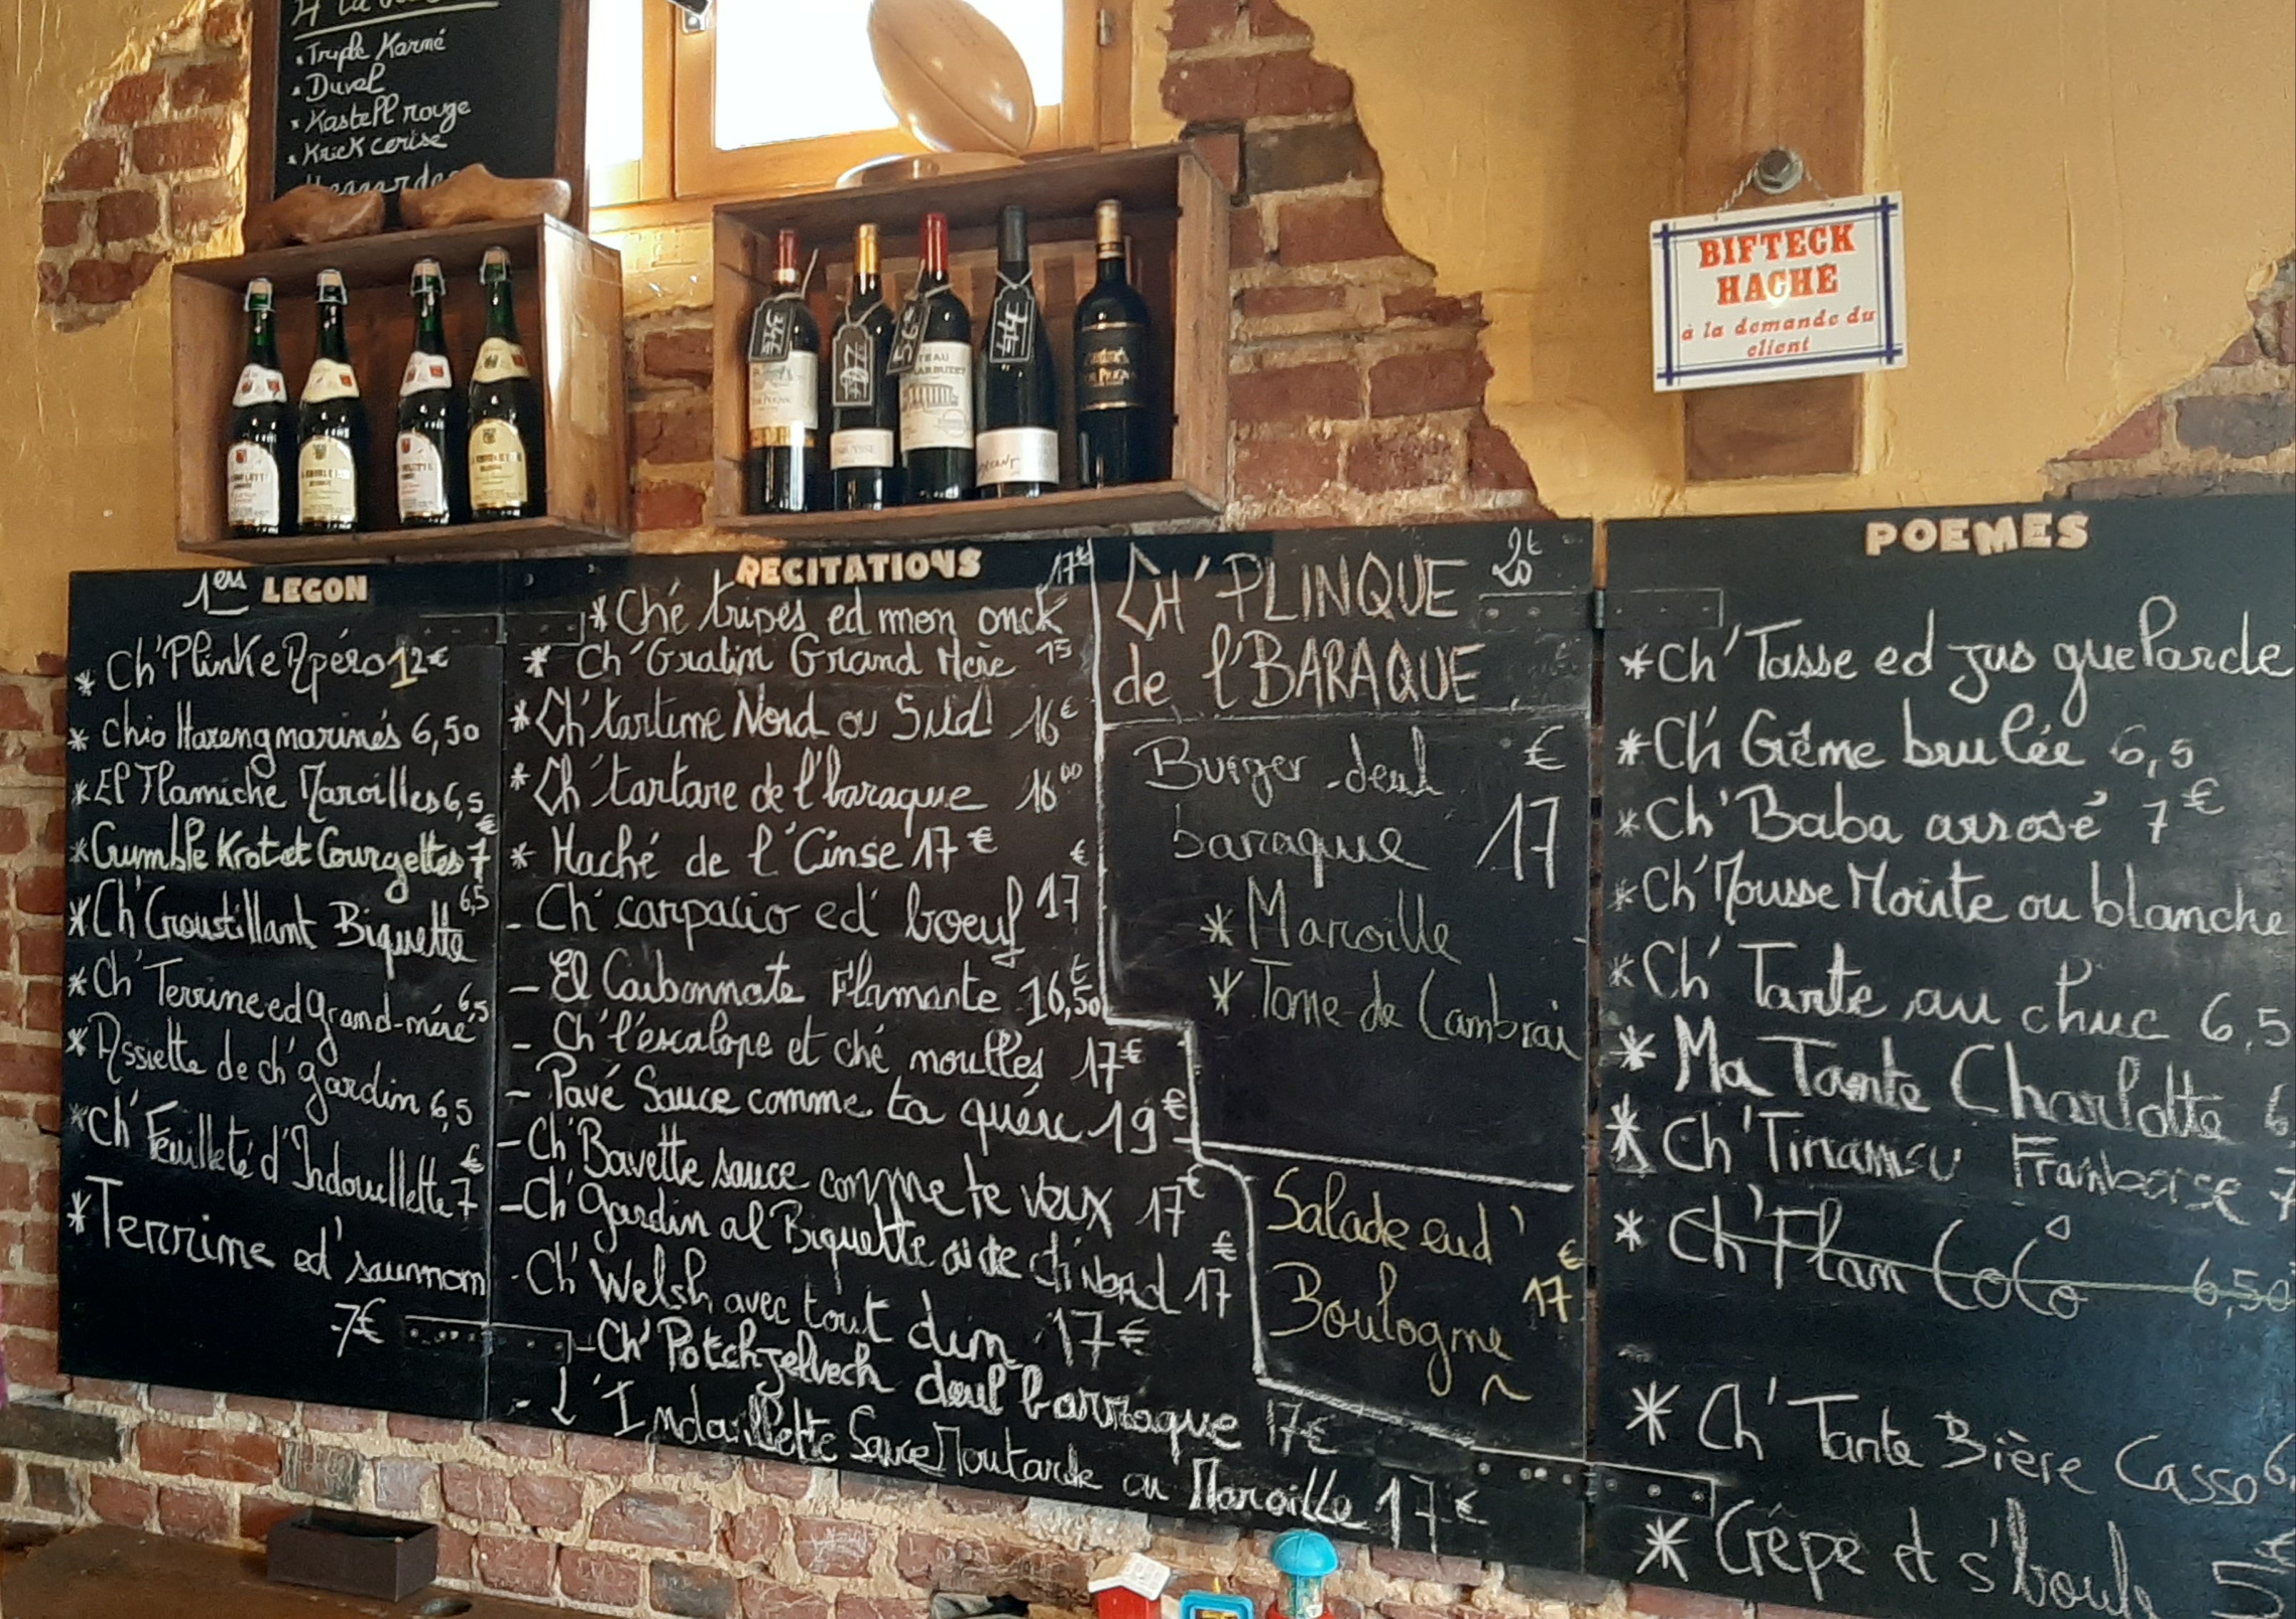 Triple Karmé
Duvel
Kastell rouge
Kriek cerise
34€
27€
56€
44€
BIFTECK
HACHÉ
à la demande du
client
1ers LECON
* Ch'Plinke Apéro 12€
* Chio Harengmarinés 6,50
* El Flamiche Maroilles 6,5
* Crumble Krot et Courgettes 7€
* Ch'Croustillant Biquette 6,5
* Ch'Terrine ed grand-mére 6,5
* Assiette de ch'gardin 6,5
* Ch'Feuilleté d'Andouillette 7€
* Terrine ed'saumon
7€
RECITATIONS
* Ché tripes ed mon onck 17€
* Ch'Gratin Grand Mère 15
* Ch'tartine Nord ou Sud 16€
* Ch'tartare de l'baraque 16
* Haché de l'Cinse 17€
- Ch'carpacio ed'boeuf 17€
- El Carbonnate Flamante 16,50€
- Ch'l'escalope et ché moulles 17€
- Pavé Sauce comme ta quérc 19€
- Ch'Bavette sauce comme te veux 17€
- Ch'gardin al Biquette ai de ch'Nord 17€
- Ch'Welsh avec tout dim 17€
- Ch'Potchjelvech deul'barraque 17€
- L'Indaillette Sauce Moutarde ou Maroille 17€
CH'PLINQUE 20€
de l'BARAQUE
Burger deul €
baraque 17
* Maroille
* Tome de Cambrai
Salade eud'
Boulogne 17€
POEMES
* Ch'Tasse ed jus que Parde
* Ch'Crême brulée 6,5
* Ch'Baba arrosé 7€
* Ch'Mousse Noirte ou blanche
* Ch'Tarte au chuc 6,5
* Ma Tante Charlotte
* Ch'Tiramisu Framboise 7
* Ch'Flan CoCo 6,50
* Ch'Tarte Bière Casso 6
* Crêpe et s'boule 5€